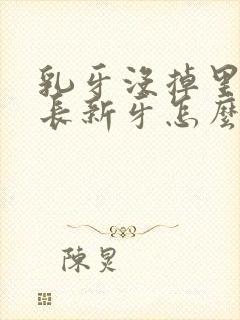 乳牙沒掉里
長新牙怎麼
陳炅